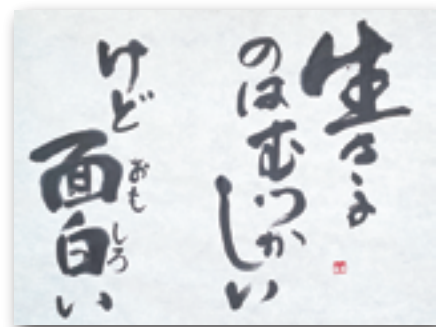 生きる
のはむつかしい
けど
面白い
おもしろ